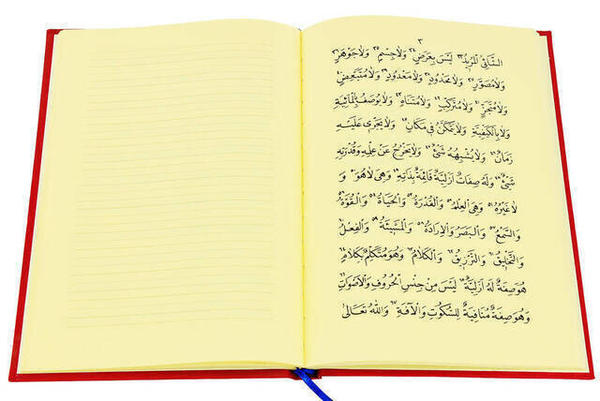 ٣
الشَّائِي الْمُرِيدُ لَيْسَ بِعَرَضٍ وَلَاجِسْمٍ وَلَاجَوْهَرٍ
وَلَامُصَوَّرٍ وَلَامَحْدُودٍ وَلَامَعْدُودٍ وَلَامُتَبَعِّضٍ
وَلَامُتَجَزٍّ وَلَامُتَرَكِّبٍ وَلَامُتَنَاهٍ وَلَايُوصَفُ بِالْمَائِيَّةِ
وَلَابِالْكَيْفِيَّةِ وَلَايَتَمَكَّنُ فِي مَكَانٍ وَلَايَجْرِي عَلَيْهِ
زَمَانٌ وَلَايُشْبِهُهُ شَيْءٌ وَلَايَخْرُجُ عَنْ عِلْمِهِ وَقُدْرَتِهِ
شَيْءٌ وَلَهُ صِفَاتٌ اَزَلِيَّةٌ قَائِمَةٌ بِذَاتِهِ وَهِيَ لَاهُوَ وَ
لَاغَيْرُهُ وَهِيَ الْعِلْمُ وَالْقُدْرَةُ وَالْحَيَاةُ وَالْقُوَّةُ
وَالسَّمْعُ وَالْبَصَرُ وَالْاِرَادَةُ وَالْمَشِيئَةُ وَالْفِعْلُ
وَالتَّخْلِيقُ وَالتَّرْزِيقُ وَالْكَلَامُ وَهُوَ مُتَكَلِّمٌ بِكَلَامٍ
هُوَ صِفَةٌ لَهُ اَزَلِيَّةٌ لَيْسَ مِنْ جِنْسِ الْحُرُوفِ وَالْاَصْوَاتِ
وَهُوَ صِفَةٌ مُنَافِيَةٌ لِلسُّكُوتِ وَالْآفَةِ وَاللهُ تَعَالَى